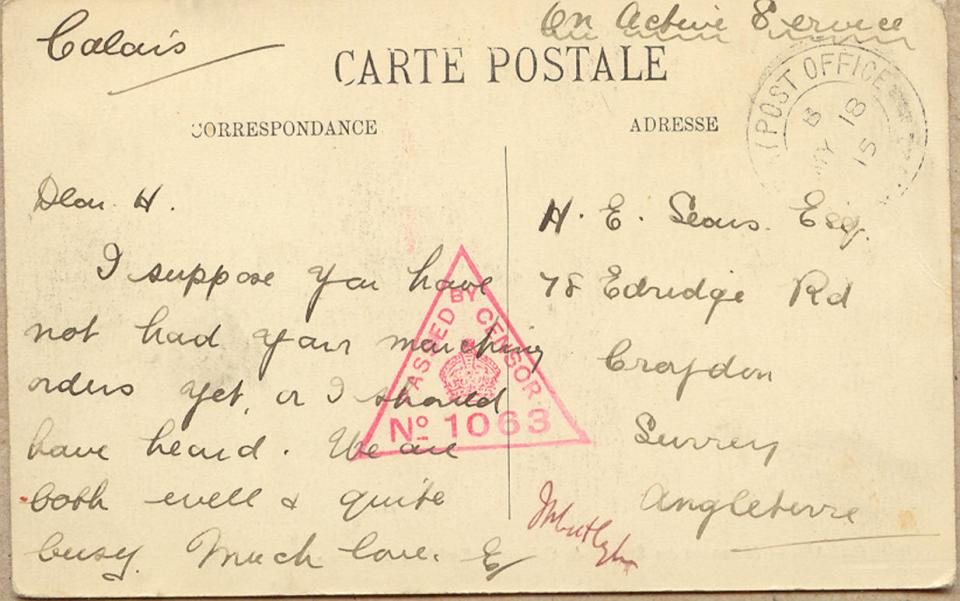 Calais
On Active Service
CARTE POSTALE
CORRESPONDANCE
ADRESSE
POST OFFICE
8
MY 18
15
Dear H.
I suppose you have
not had your marching
orders yet, or I should
have heard. We are
both well & quite
busy. Much love. E
H. E. Sears. Esq.
78 Edridge Rd
Croydon
Surrey
Angleterre
PASSED BY CENSOR
No 1063